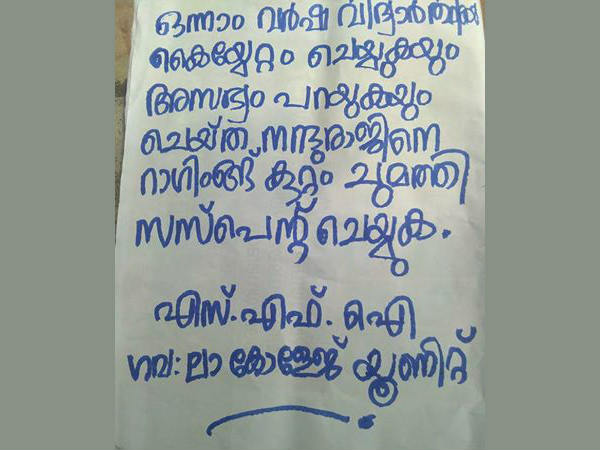 ഒന്നാം വർഷ വിദ്യാർത്ഥിയെ
കൈയ്യേറ്റം ചെയ്യുകയും
അസഭ്യം പറയുകയും
ചെയ്ത നന്ദുരാജിനെ
റാഗിംങ്ങ് കുറ്റം ചുമത്തി
സസ്പെന്റ് ചെയ്യുക.
എസ്.എഫ്.ഐ
ഗവ: ലാ കോളേജ് യൂണിറ്റ്